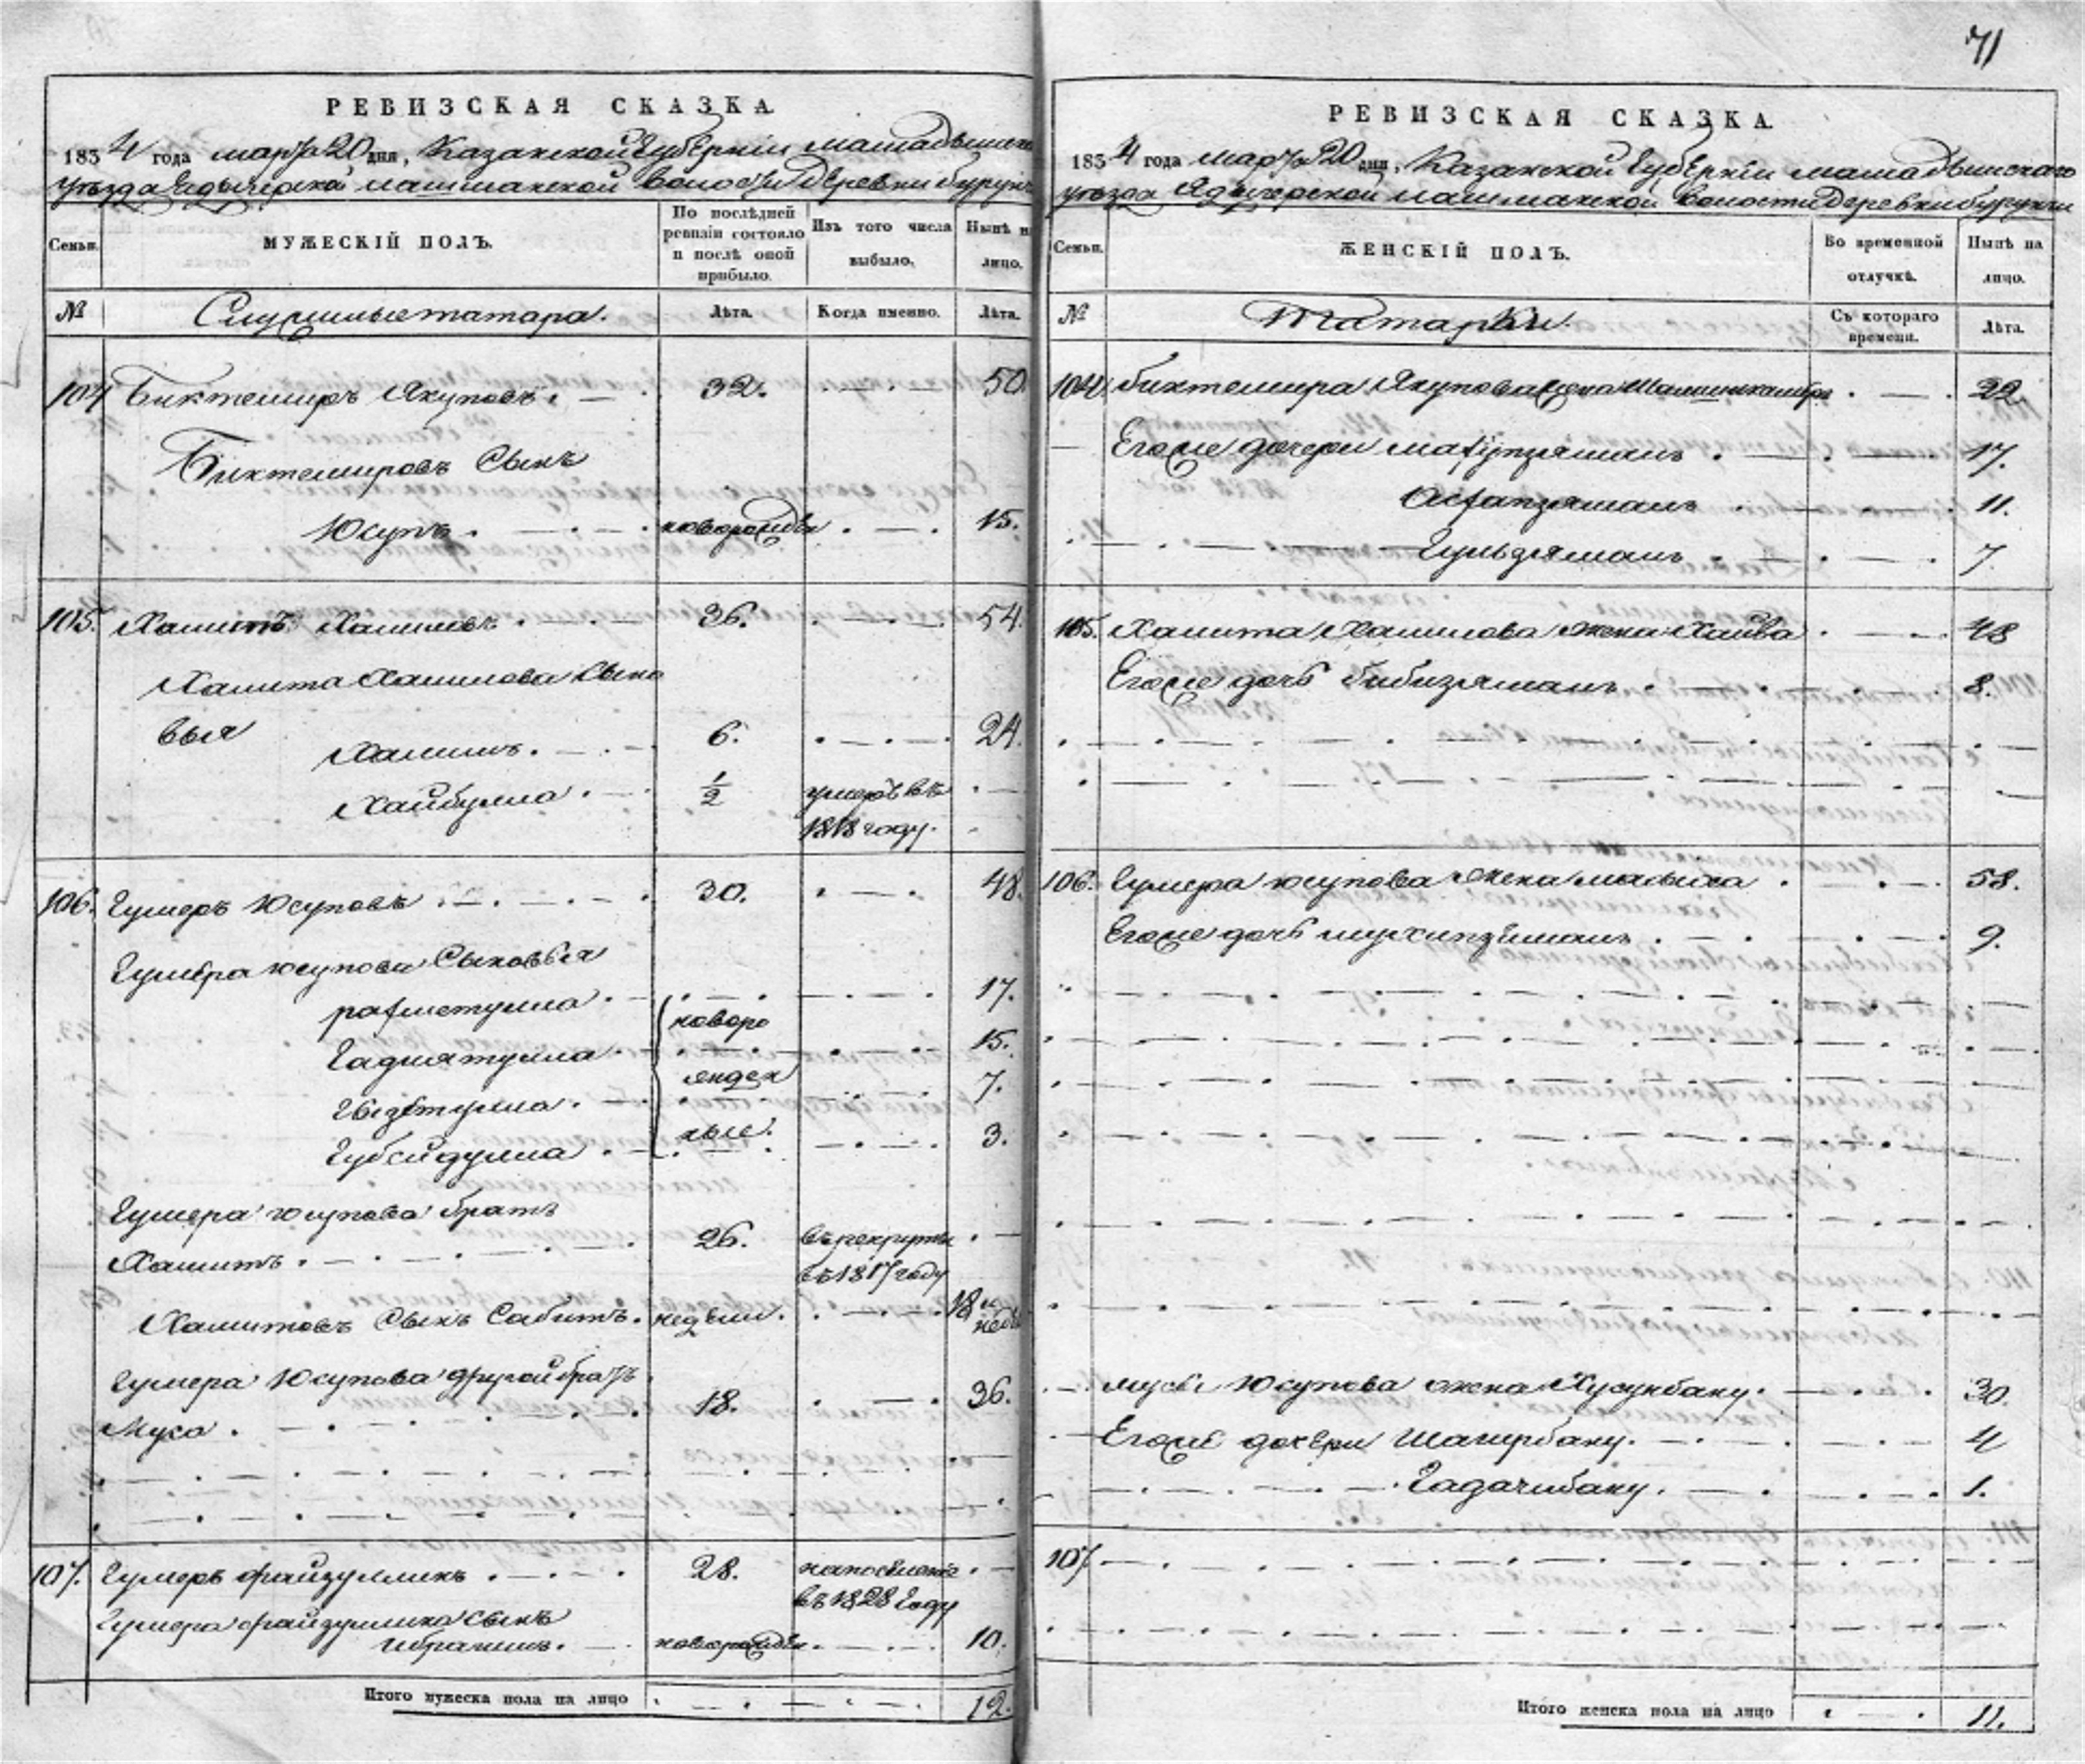 71
РЕВИЗСКАЯ СКАЗКА
1834 года марта 20 дня, Казанской Губернiи мамадышскаго
уѣзда Едыгерской лашманской волости деревни бурунчи
Семьи.
МУЖЕСКIЙ ПОЛЪ.
По послѣдней ревизiи состояло и послѣ оной прибыло.
Изъ того числа выбыло.
Нынѣ на лицо.
№
Служилые татара.
Лѣта.
Когда именно.
Лѣта.
104 Биктемиръ Якуповъ. 32. 50.
Биктемировъ Сынъ
Юсупъ. новорожден 15.
105. Хамитъ Халиловъ. 36. 54.
Халита Халилова Сыно
вья
Халимъ. 6. 24.
Хайбулла. 1/2 умеръ въ
1818 году.
106. Гумеръ Юсуповъ 30. 48.
Гумера юсупова Сыновья
рахметулла. 17.
новоро
Гадиятулла. 15.
жден
Гызетулла. 7.
ные.
Губейдулла. 3.
Гумера юсупова братъ
Хамитъ. 26. въ рекруты
въ 1817 году
Хамитовъ Сынъ Сабитъ. недѣли. 18 и недѣ
Гумера Юсупова другой братъ
Муса. 18. 36.
107. Гумеръ файзуллинъ. 28. на поселенiе
въ 1828 Году
Гумера файзуллина сынъ
ибрагимъ. новорожден. 10.
Итого мужеска пола на лицо 12.
РЕВИЗСКАЯ СКАЗКА.
1834 года марта 20 дня, Казанской Губернiи мамадышскаго
уѣзда Ядыгерской лашманской волости деревни бурунчи
Семьи.
ЖЕНСКIЙ ПОЛЪ.
Во временной отлучкѣ.
Нынѣ на лицо.
№
Татарки.
Съ котораго времени.
Лѣта.
104. биктемира Якупова жена 22.
Егоже дочери махупзямалъ. 17.
Афтапзямалъ 11.
Гульзямалъ 7.
105. Халита Халилова жена Хаива 48
Егоже дочь бибизямалъ. 8.
106. Гумера юсупова жена малиха 58.
Егоже дочь 9.
Мусы Юсупова жена Хусунбану. 30.
Егоже дочери Шагирбану. 4
Гадачибану. 1.
107
Итого женска пола на лицо 11.